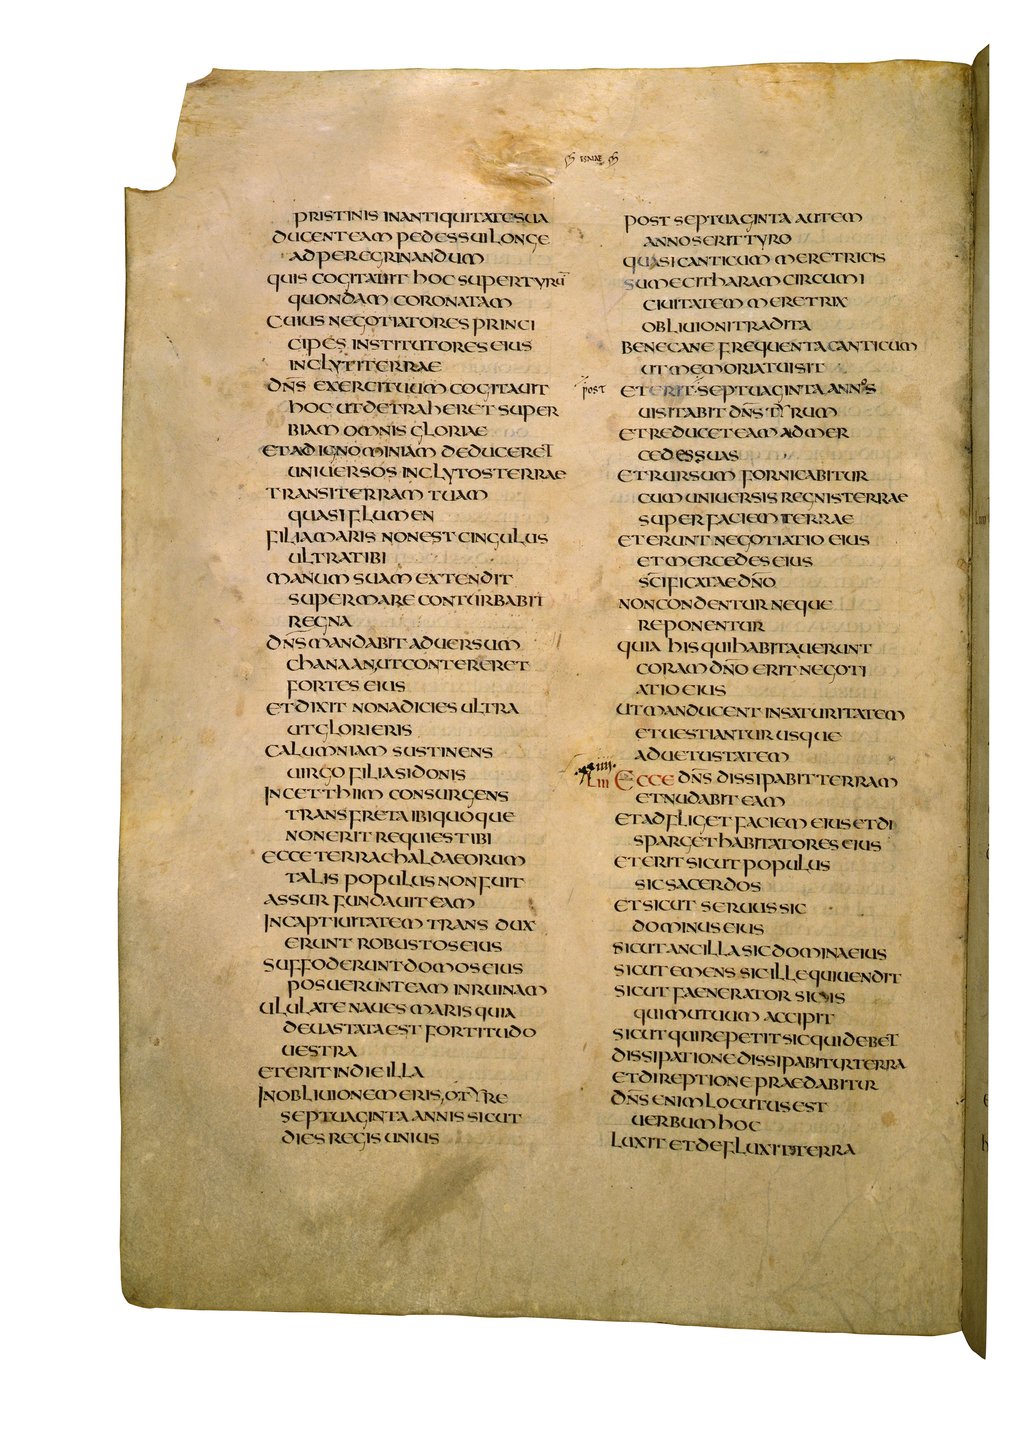 ESAIAE
PRISTINIS INANTIQUITATE SUA
DUCENT EAM PEDES SUI LONGE
AD PEREGRINANDUM
QUIS COGITAUIT HOC SUPER TYRŪ
QUONDAM CORONATAM
CUIUS NEGOTIATORES PRINCI
CIPES INSTITUTORES EIUS
INCLYTI TERRAE
DN̄S EXERCITUUM COGITAUIT
HOC UT DETRAHERET SUPER
BIAM OMNIS GLORIAE
ET AD IGNOMINIAM DEDUCERET
UNIUERSOS INCLYTOS TERRAE
TRANSI TERRAM TUAM
QUASI FLUMEN
FILIA MARIS NON EST CINGULUS
ULTRA TIBI
MANUM SUAM EXTENDIT
SUPER MARE CONTURBABIT
REGNA
DN̄S MANDABIT ADUERSUM
CHANAAN, UT CONTERERET
FORTES EIUS
ET DIXIT NON ADICIES ULTRA
UT GLORIERIS
CALUMNIAM SUSTINENS
UIRGO FILIA SIDONIS
IN CETTHIM CONSURGENS
TRANSFRETA IBI QUOQUE
NON ERIT REQUIES TIBI
ECCE TERRA CHALDAEORUM
TALIS POPULUS NON FUIT
ASSUR FUNDAUIT EAM
IN CAPTIUITATEM TRANS DUX
ERUNT ROBUSTOS EIUS
SUFFODERUNT DOMOS EIUS
POSUERUNT EAM IN RUINAM
ULULATE NAUES MARIS QUIA
DEUASTATA EST FORTITUDO
UESTRA
ET ERIT IN DIE ILLA
IN OBLIUIONEM ERIS, O TYRE
SEPTUAGINTA ANNIS SICUT
DIES REGIS UNIUS
POST SEPTUAGINTA AUTEM
ANNOS ERIT TYRO
QUASI CANTICUM MERETRICIS
SUME CITHARAM CIRCUMI
CIUITATEM MERETRIX
OBLIUIONI TRADITA
BENE CANE FREQUENTA CANTICUM
UT MEMORIA TUI SIT
post ET ERIT SEPTUAGINTA ANNOS
UISITABIT DN̄S TYRUM
ET REDUCET EAM AD MER
CEDES SUAS
ET RURSUM FORNICABITUR
CUM UNIUERSIS REGNIS TERRAE
SUPER FACIEM TERRAE
ET ERUNT NEGOTIATIO EIUS
ET MERCEDES EIUS
SC̄IFICATAE DN̄O
NON CONDENTUR NEQUE
REPONENTUR
QUIA HIS QUI HABITAUERUNT
CORAM DN̄O ERIT NEGOTI
ATIO EIUS
UT MANDUCENT IN SATURITATEM
ET UESTIANTUR USQUE
AD UETUSTATEM
xxiiii.
LIII ECCE DN̄S DISSIPABIT TERRAM
ET NUDABIT EAM
ET ADFLIGET FACIEM EIUS ET DI
SPARGET HABITATORES EIUS
ET ERIT SICUT POPULUS
SIC SACERDOS
ET SICUT SERUUS SIC
DOMINUS EIUS
SICUT ANCILLA SIC DOMINA EIUS
SICUT EMENS SIC ILLE QUI UENDIT
SICUT FAENERATOR SIC IS
QUI MUTUUM ACCIPIT
SICUT QUI REPETIT SIC QUI DEBET
DISSIPATIONE DISSIPABITUR TERRA
ET DIREPTIONE PRAEDABITUR
DN̄S ENIM LOCUTUS EST
UERBUM HOC
LUXIT ET DEFLUXIT TERRA